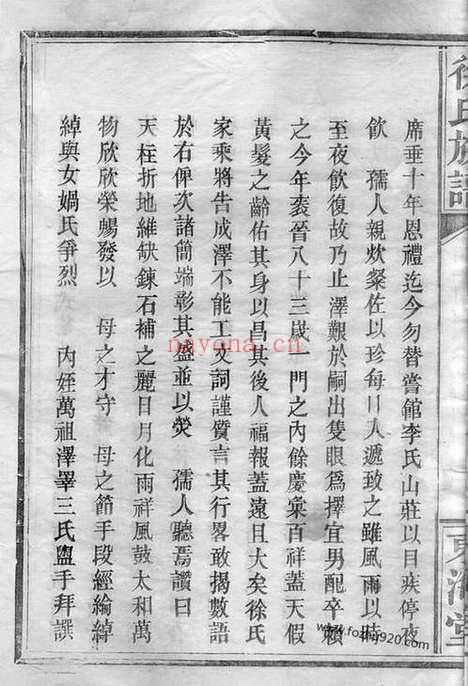 徐氏族譜
東海堂
席垂十年恩禮迄今勿替嘗館李氏山莊以目疾停夜
飲　孺人親炊粲佐以珍每日人遞致之雖風雨以時
至夜飲復故乃止澤艱於嗣出隻眼為擇宜男配卒賴
之今年袠晉八十三歲一門之內餘慶彙百祥蓋天假
黃髮之齡佑其身以昌其後人福報蓋遠且大矣徐氏
家乘將告成澤不能工文詞謹質言其行畧敢揭數語
於右俾次諸簡端彰其盛並以熒　孺人聽焉讚曰
天柱折地維缺鍊石補之麗日月化雨祥風鼓太和萬
物欣欣榮暢發以　母之才守　母之節手段經綸綽
綽與女媧氏爭烈　　內姪萬祖澤睪三氏盥手拜譔
nayona.ca.cn
www.fozhu920.com